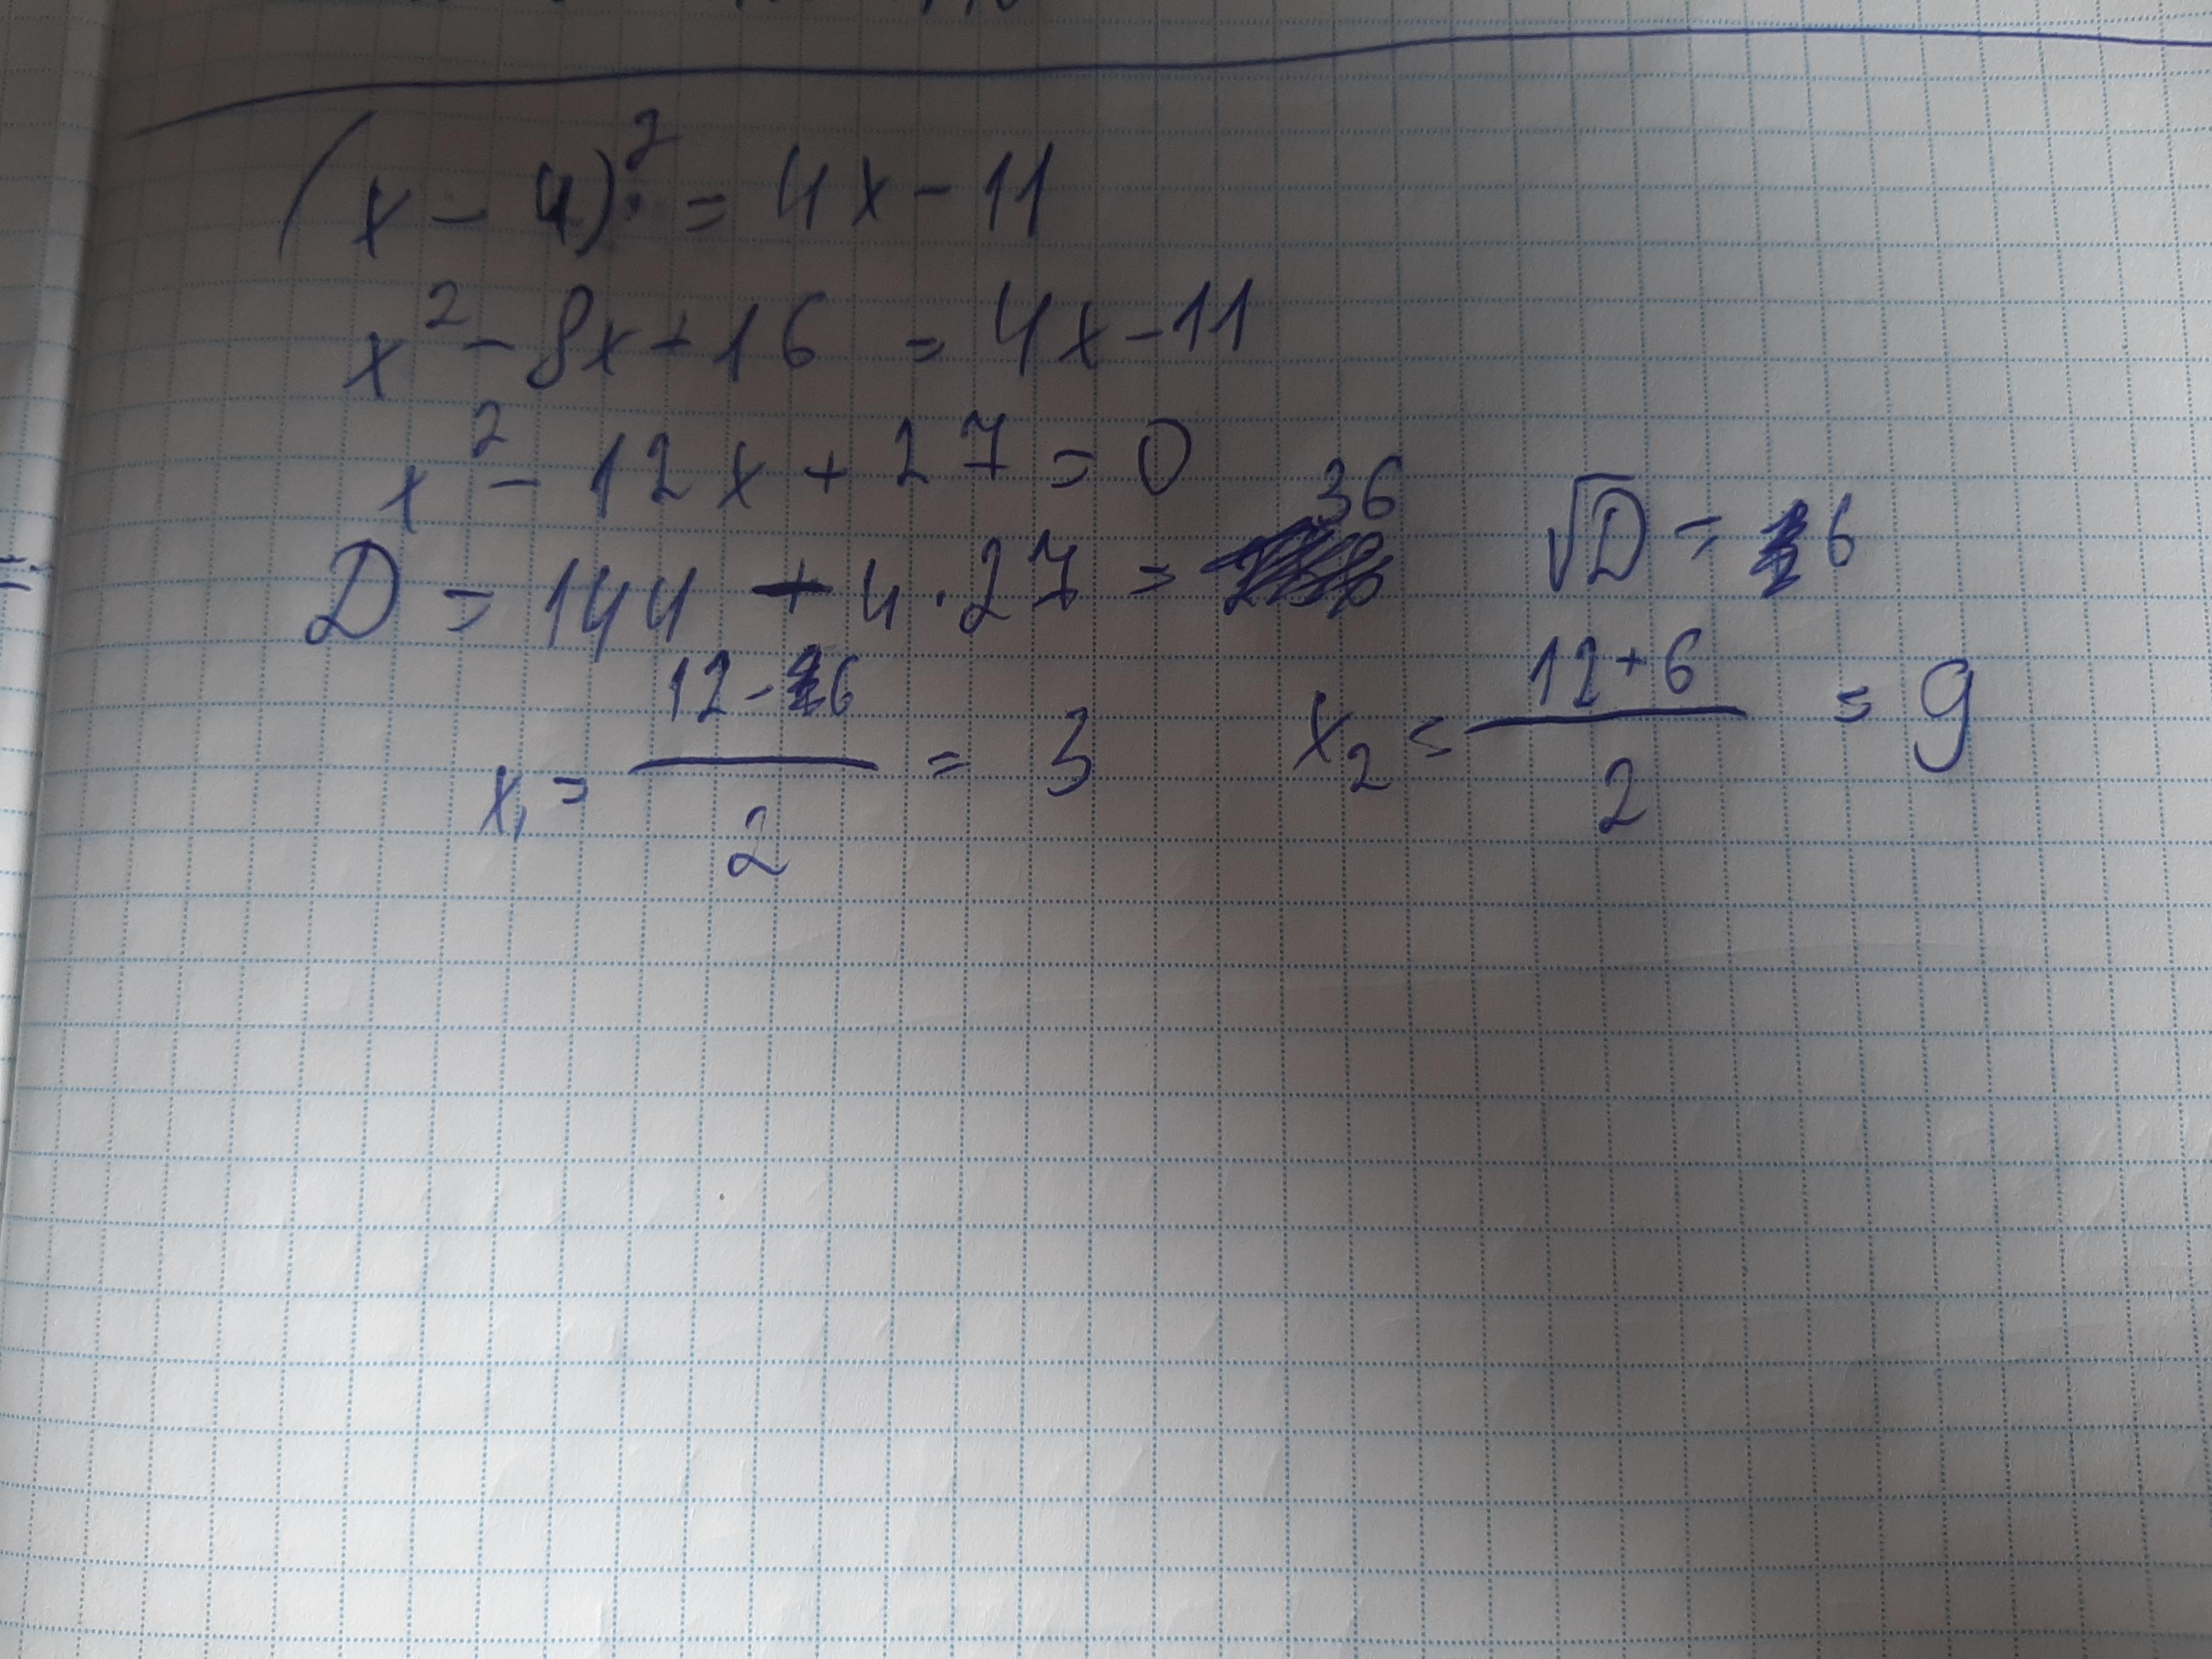 (x - 4)² = 4x - 11
x² - 8x + 16 = 4x - 11
x² - 12x + 27 = 0
D = 144 - 4 · 27 = 36 √D = 6
x₁ = (12 - 6)/2 = 3 x₂ = (12 + 6)/2 = 9